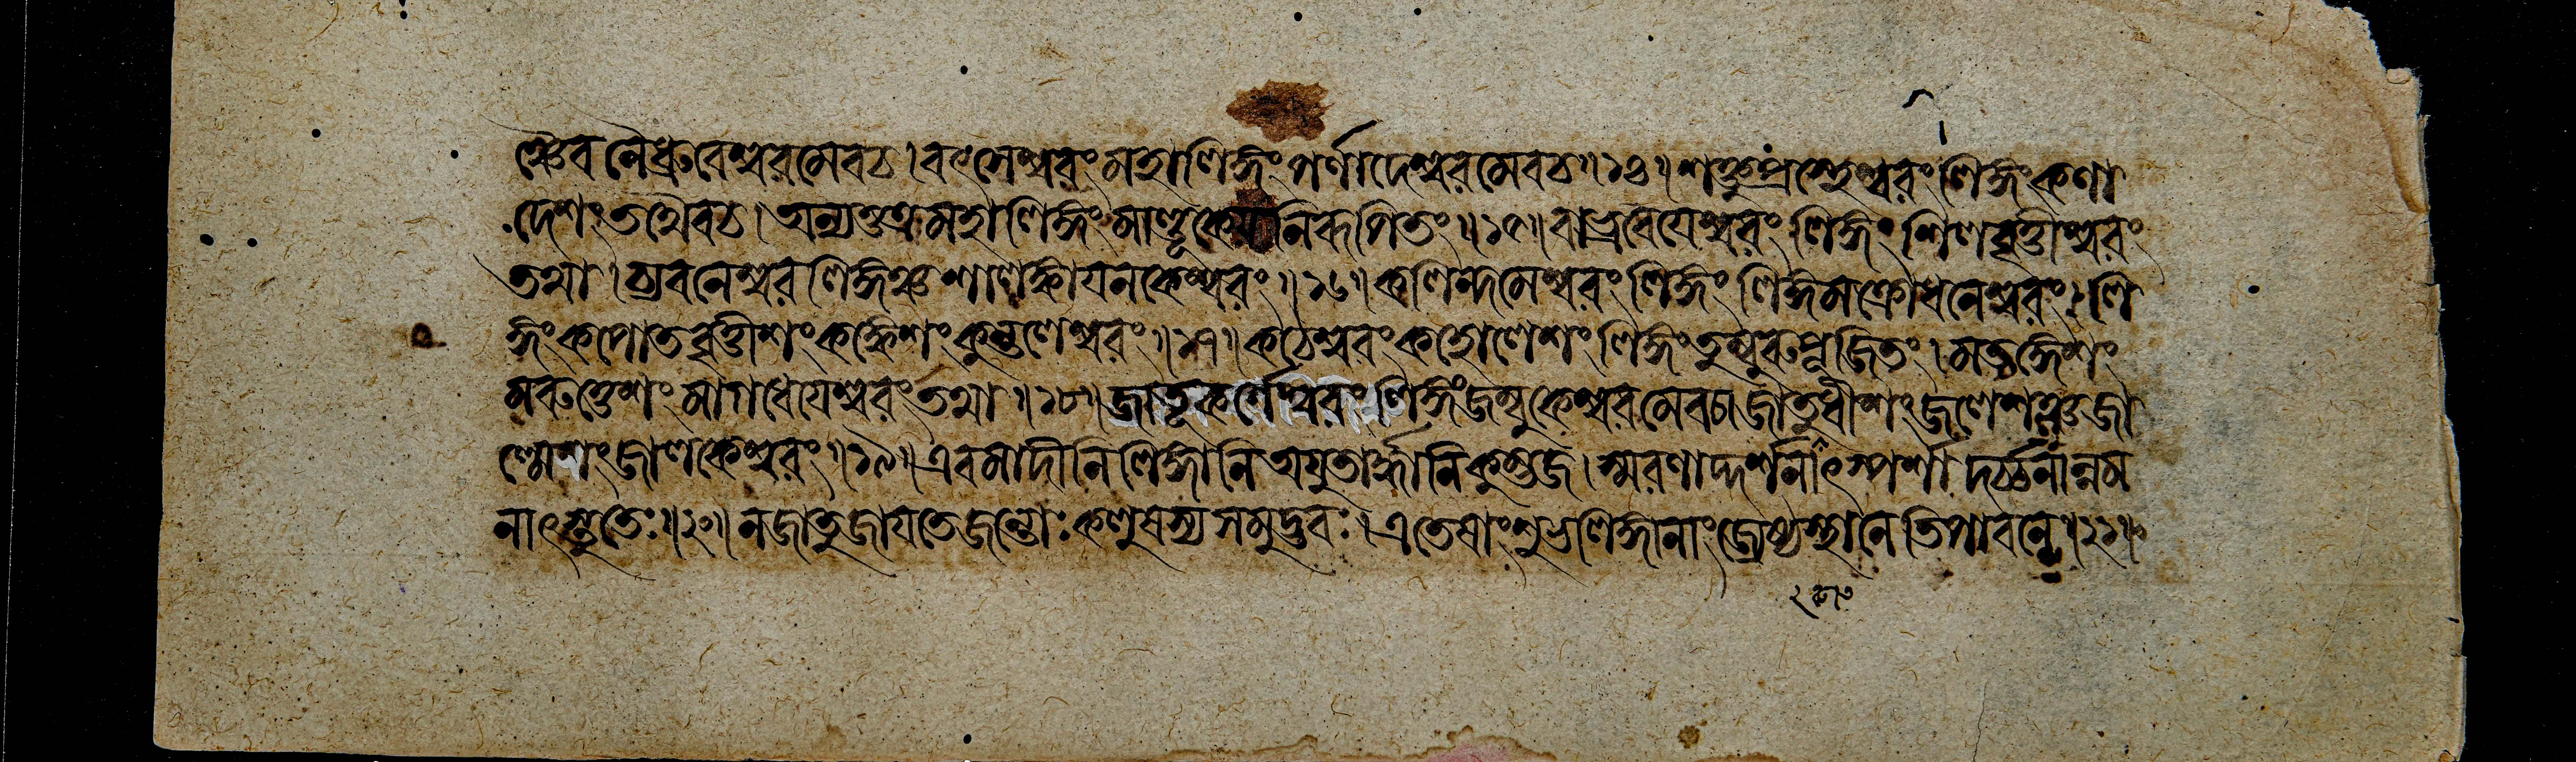 ঞ্চৈব নৈধ্রুবেশ্বরমেবচ।বৎসেশ্বরংমহালিঙ্গংপর্ণাদেশ্বরমেবচ॥১৪॥শক্তুপ্রস্থেশ্বরংলিঙ্গংকণা
দেশংতথৈবচ।অন্যত্তত্রমহালিঙ্গংমাণ্ডূকেয়নিরূপিতং॥১৫॥বাভ্রবেয়েশ্বরংলিঙ্গংশিলাবৃত্তীশ্বরং
তথা।চ্যবনেশ্বরলিঙ্গঞ্চশালঙ্কায়নকেশ্বরং॥১৬॥কলিন্দমেশ্বরংলিঙ্গংলিঙ্গমক্রোধনেশ্বরং।লি
ঙ্গংকপোতবৃত্তীশংকঙ্কেশংকুন্তলেশ্বরং॥১৭॥কঠেশ্বরংকহোলেশংলিঙ্গংতুম্বুরুপূজিতং।মতঙ্গেশং
মরুত্তেশংমাগধেয়েশ্বরংতথা॥১৮॥জাতূকর্ণেশ্বরংলিঙ্গংজম্বুকেশ্বরমেবচ।জাতুধীশংজলেশঞ্চজা
ল্মেশংজালকেশ্বরং॥১৯॥এবমাদীনিলিঙ্গানিঅযুতার্দ্ধানিকুম্ভজ।স্মরণাদ্দর্শনাৎস্পর্শাদর্চনান্নম
নাৎস্তুতেঃ॥২০॥নজাতুজায়তেজন্তোঃকলুষস্যসমুদ্ভবঃ।এতেষাংশুভলিঙ্গানাংজ্যেষ্ঠস্থানেতিপাবনে॥২১॥